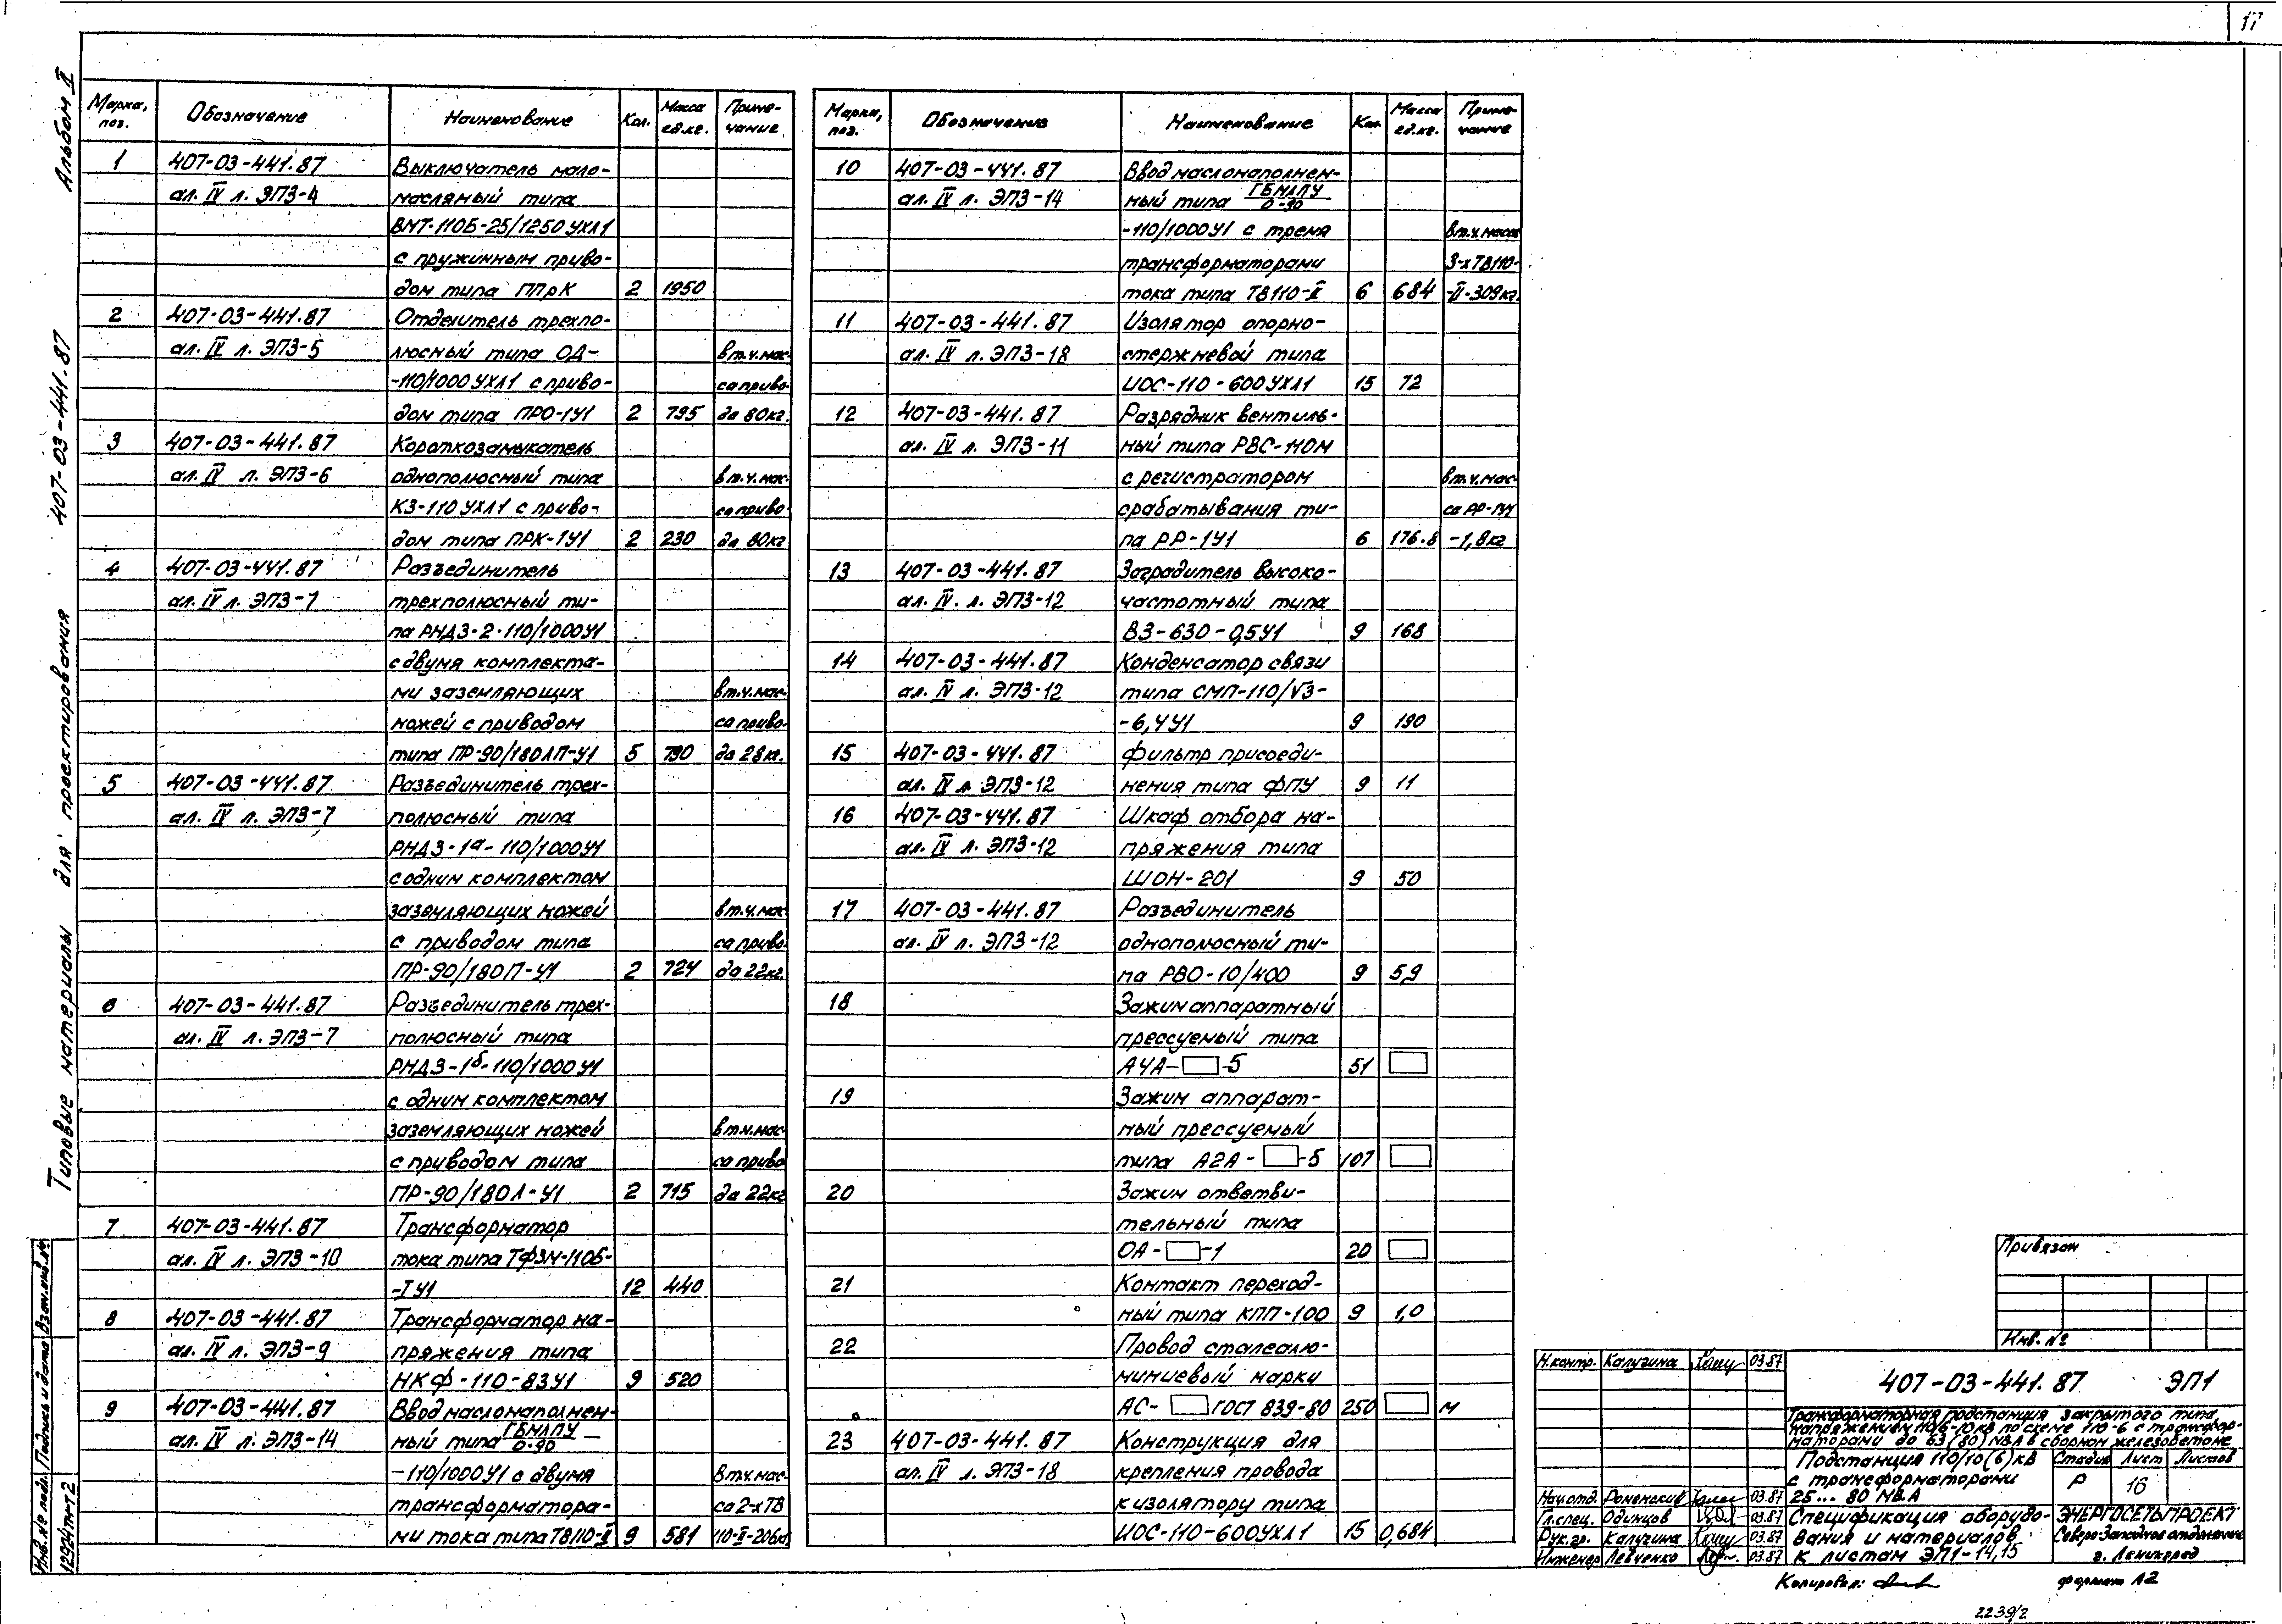 17
Альбом II
407-03-441.87
Типовые материалы для проектирования
Марка, поз. Обозначение Наименование Кол. Масса ед.кг. Приме-чание
1 407-03-441.87 Выключатель мало-
ал. IV л. ЭП3-4 масляный типа
ВМТ-110Б-25/1250УХЛ1
с пружинным приво-
дом типа ППрК 2 1950
2 407-03-441.87 Отделитель трехпо-
ал. IV л. ЭП3-5 люсный типа ОД- в т.ч. мас-
-110/1000УХЛ1 с приво- са приво-
дом типа ПРО-1У1 2 795 да 80кг.
3 407-03-441.87 Короткозамыкатель
ал. IV л. ЭП3-6 однополюсный типа в т.ч. мас-
КЗ-110УХЛ1 с приво- са приво-
дом типа ПРК-1У1 2 230 да 80кг
4 407-03-441.87 Разъединитель
ал. IV л. ЭП3-7 трехполюсный ти-
па РНДЗ-2-110/1000У1
с двумя комплекта-
ми заземляющих в т.ч. мас-
ножей с приводом са приво-
типа ПР-90/180ЛП-У1 5 790 да 28кг.
5 407-03-441.87 Разъединитель трех-
ал. IV л. ЭП3-7 полюсный типа
РНДЗ-1а-110/1000У1
с одним комплектом
заземляющих ножей в т.ч. мас-
с приводом типа са приво-
ПР-90/180П-У1 2 724 да 22кг.
6 407-03-441.87 Разъединитель трех-
ал. IV л. ЭП3-7 полюсный типа
РНДЗ-1б-110/1000У1
с одним комплектом
заземляющих ножей в т.ч. мас-
с приводом типа са приво
ПР-90/180Л-У1 2 715 да 22кг
7 407-03-441.87 Трансформатор
ал. IV л. ЭП3-10 тока типа ТФЗМ-110Б-
-I У1 12 440
8 407-03-441.87 Трансформатор на-
ал. IV л. ЭП3-9 пряжения типа
НКФ-110-83У1 9 520
9 407-03-441.87 Ввод маслонаполнен-
ал. IV л. ЭП3-14 ный типа ГБМЛПУ/0-90 —
-110/1000У1 с двумя В т.ч. мас-
трансформатора- са 2-х ТВ
ми тока типа ТВ110-II 9 581 110-II-206кг
Марка, поз. Обозначение Наименование Кол. Масса ед.кг. Приме-чание
10 407-03-441.87 Ввод маслонаполнен-
ал. IV л. ЭП3-14 ный типа ГБМЛПУ/0-90
-110/1000У1 с тремя в т.ч. масса
трансформаторами 3-х ТВ110-
тока типа ТВ110-II 6 684 -II-309кг.
11 407-03-441.87 Изолятор опорно-
ал. IV л. ЭП3-18 стержневой типа
ИОС-110-600УХЛ1 15 72
12 407-03-441.87 Разрядник вентиль-
ал. IV л. ЭП3-11 ный типа РВС-110М
с регистратором в т.ч. мас-
срабатывания ти- са РР-1У1
па РР-1У1 6 176.8 -1,8кг
13 407-03-441.87 Заградитель высоко-
ал. IV. л. ЭП3-12 частотный типа
ВЗ-630-0,5У1 9 168
14 407-03-441.87 Конденсатор связи
ал. IV л. ЭП3-12 типа СМП-110/√3-
-6,4У1 9 190
15 407-03-441.87 Фильтр присоеди-
ал. IV л. ЭП3-12 нения типа ФПУ 9 11
16 407-03-441.87 Шкаф отбора на-
ал. IV л. ЭП3-12 пряжения типа
ШОН-201 9 50
17 407-03-441.87 Разъединитель
ал. IV л. ЭП3-12 однополюсный ти-
па РВО-10/400 9 5,9
18 Зажим аппаратный
прессуемый типа
А4А-□-5 51 □
19 Зажим аппарат-
ный прессуемый
типа А2А-□-5 107 □
20 Зажим ответви-
тельный типа
ОА-□-1 20 □
21 Контакт переход-
ный типа КПП-100 9 1,0
22 Провод сталеалю-
миниевый марки
АС-□ ГОСТ 839-80 250 □ м
23 407-03-441.87 Конструкция для
ал. IV л. ЭП3-18 крепления провода
к изолятору типа
ИОС-110-600УХЛ1 15 0,684
Привязан
Инв. №
Н.контр. Калугина 03.87
407-03-441.87 ЭП1
Трансформаторная подстанция закрытого типа
напряжением 110/6-10кв по схеме 110-6 с трансфор-
маторами до 63 (80) МВА в сборном железобетоне
Подстанция 110/10(6)кВ
с трансформаторами
25...80 МВ.А
Стадия Лист Листов
Р 16
Нач.отд. Роменский 03.87
Гл.спец. Одинцов 03.87
Рук.гр. Калугина 03.87
Инженер Левченко 03.87
Спецификация оборудо-
вания и материалов
к листам ЭП1-14,15
ЭНЕРГОСЕТЬПРОЕКТ
Северо-Западное отделение
г. Ленинград
Копировал:
формат А2
2239/2
Инв.№ подл. Подпись и дата Взам.инв.№
12924тм-т2